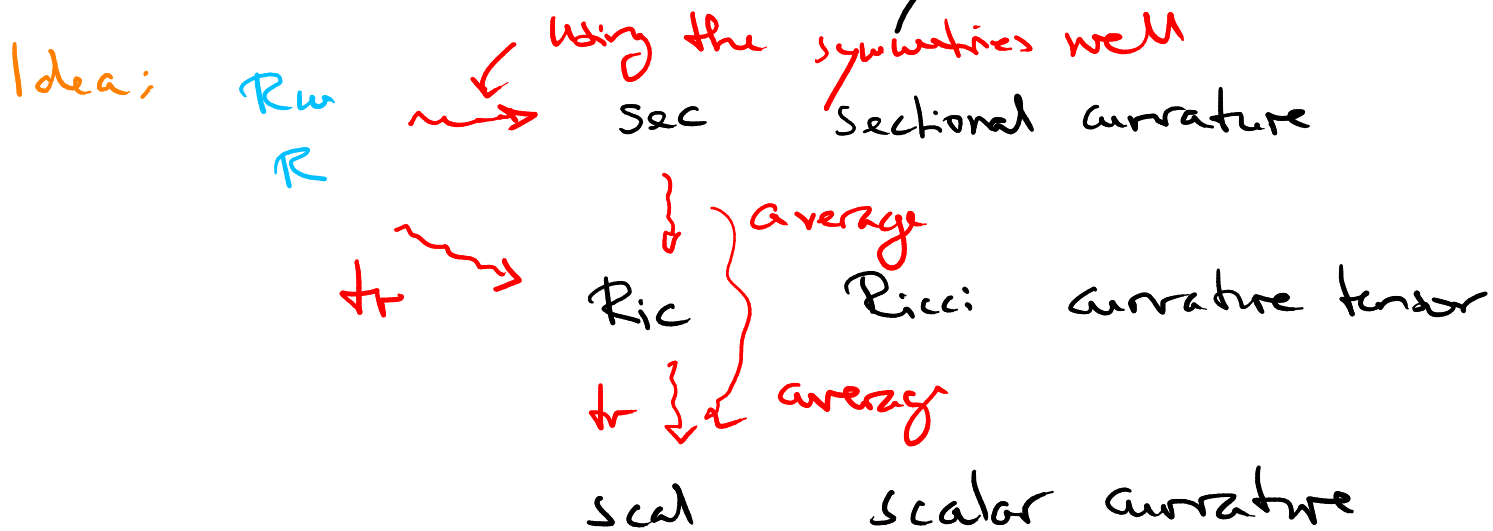 using the symmetries well
Idea: Rm sec sectional curvature
R
average
tr Ric Ricci curvature tensor
tr average
scal scalar curvature